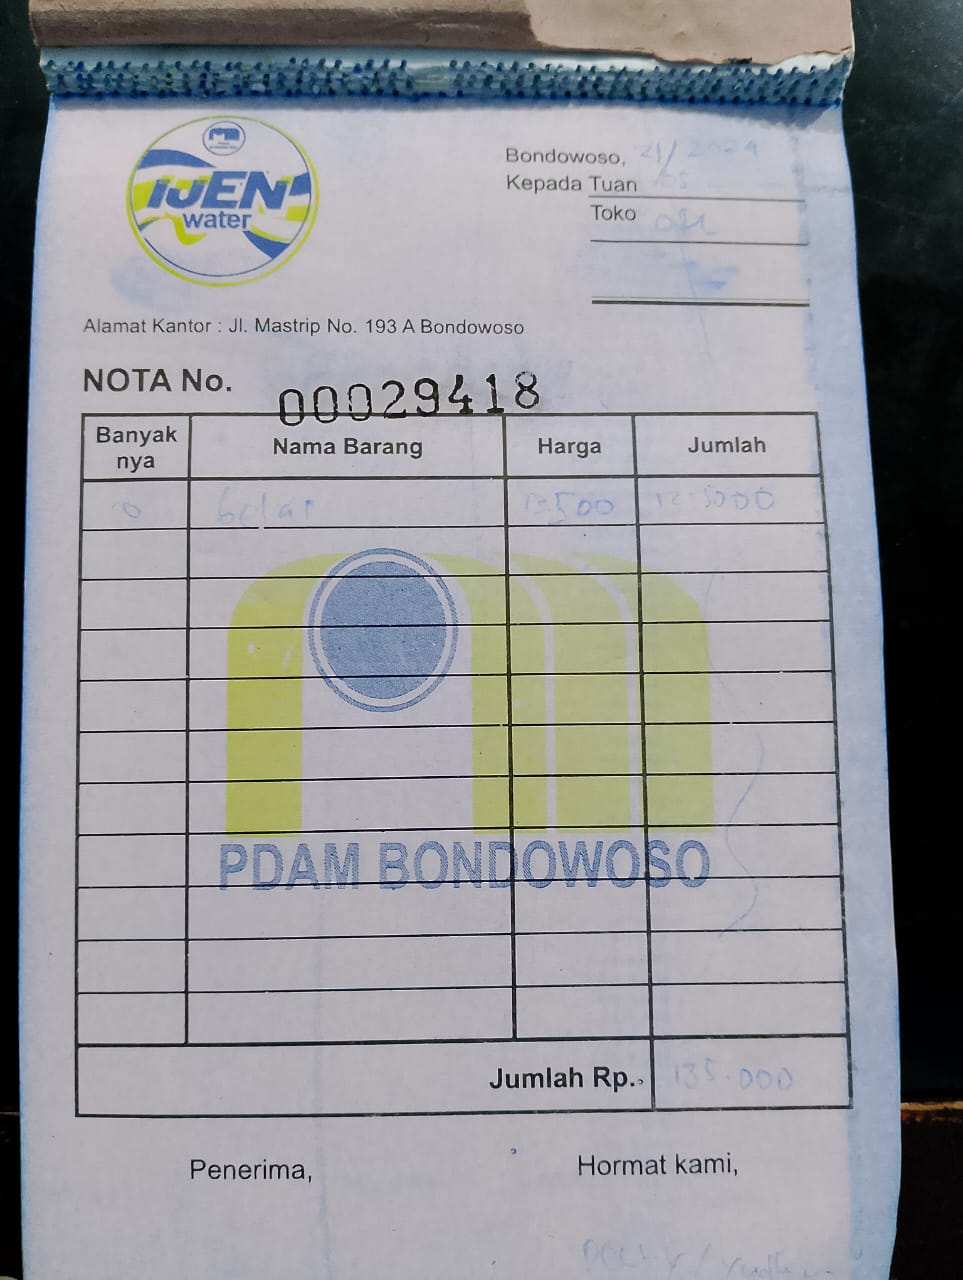 IJEN
water
Bondowoso, 21/ 2024
Kepada Tuan
Toko
Alamat Kantor : Jl. Mastrip No. 193 A Bondowoso
NOTA No. 00029418
Banyak nya Nama Barang Harga Jumlah
gelas 13.500
PDAM BONDOWOSO
Jumlah Rp. 135.000
Penerima, Hormat kami,